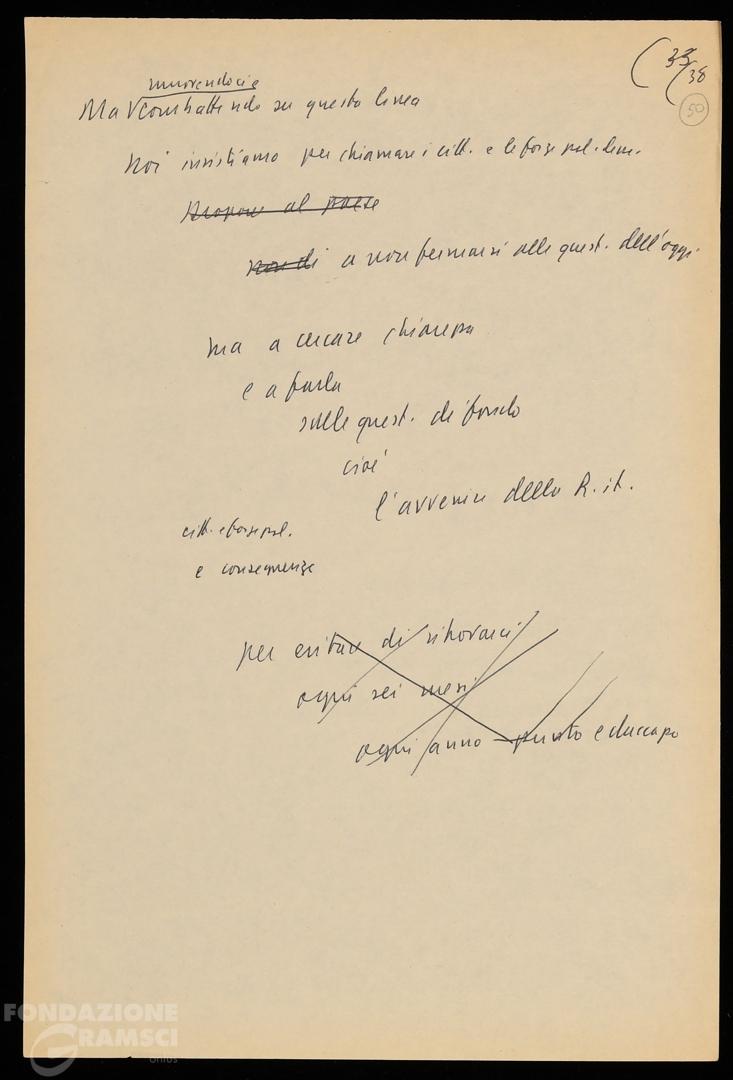 (35
(38
50
muovendoci e
Ma combattendo su questa linea
noi insistiamo per chiamare i citt. e le forze pol. dem.
proporre al paese
non di a non fermarsi alle quest. dell'oggi
ma a cercare chiarezza
e a farla
sulle quest. di fondo
cioè
l'avvenire della R. it.
citt. e forze pol.
e conseguenze
per evitare di ritrovarci
ogni sei mesi
ogni anno punto e daccapo
FONDAZIONE
GRAMSCI
onlus